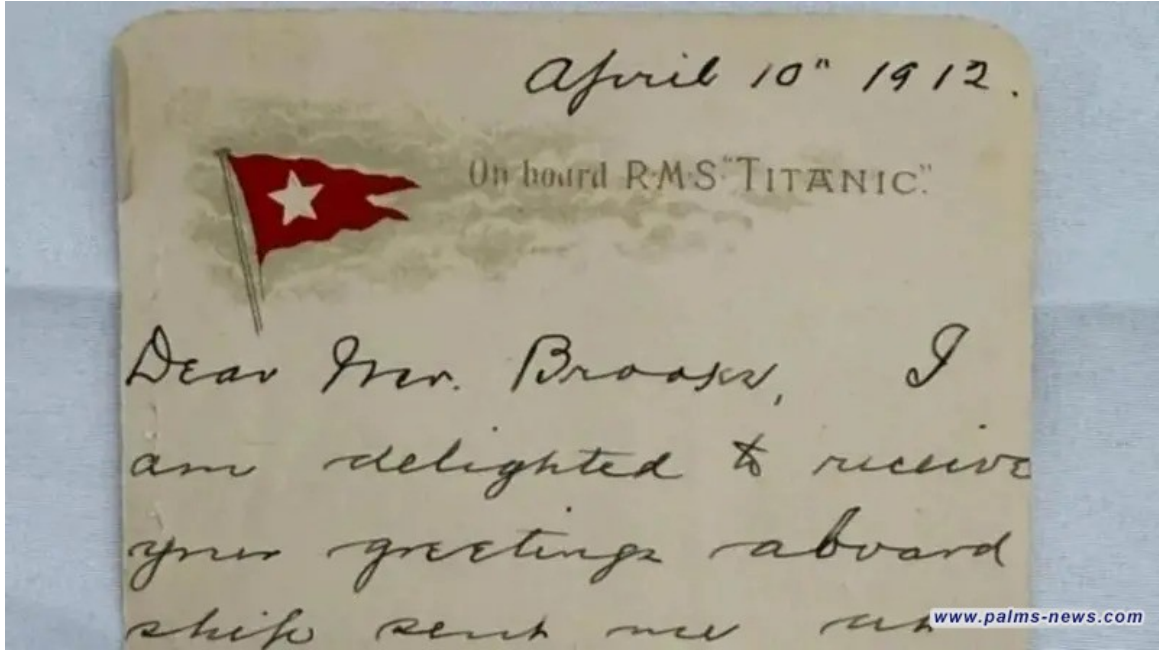 April 10" 1912.
On board R·M·S "TITANIC".
Dear Mr. Brooks, I
am delighted to receive
your greetings aboard
ship sent me
www.palms-news.com